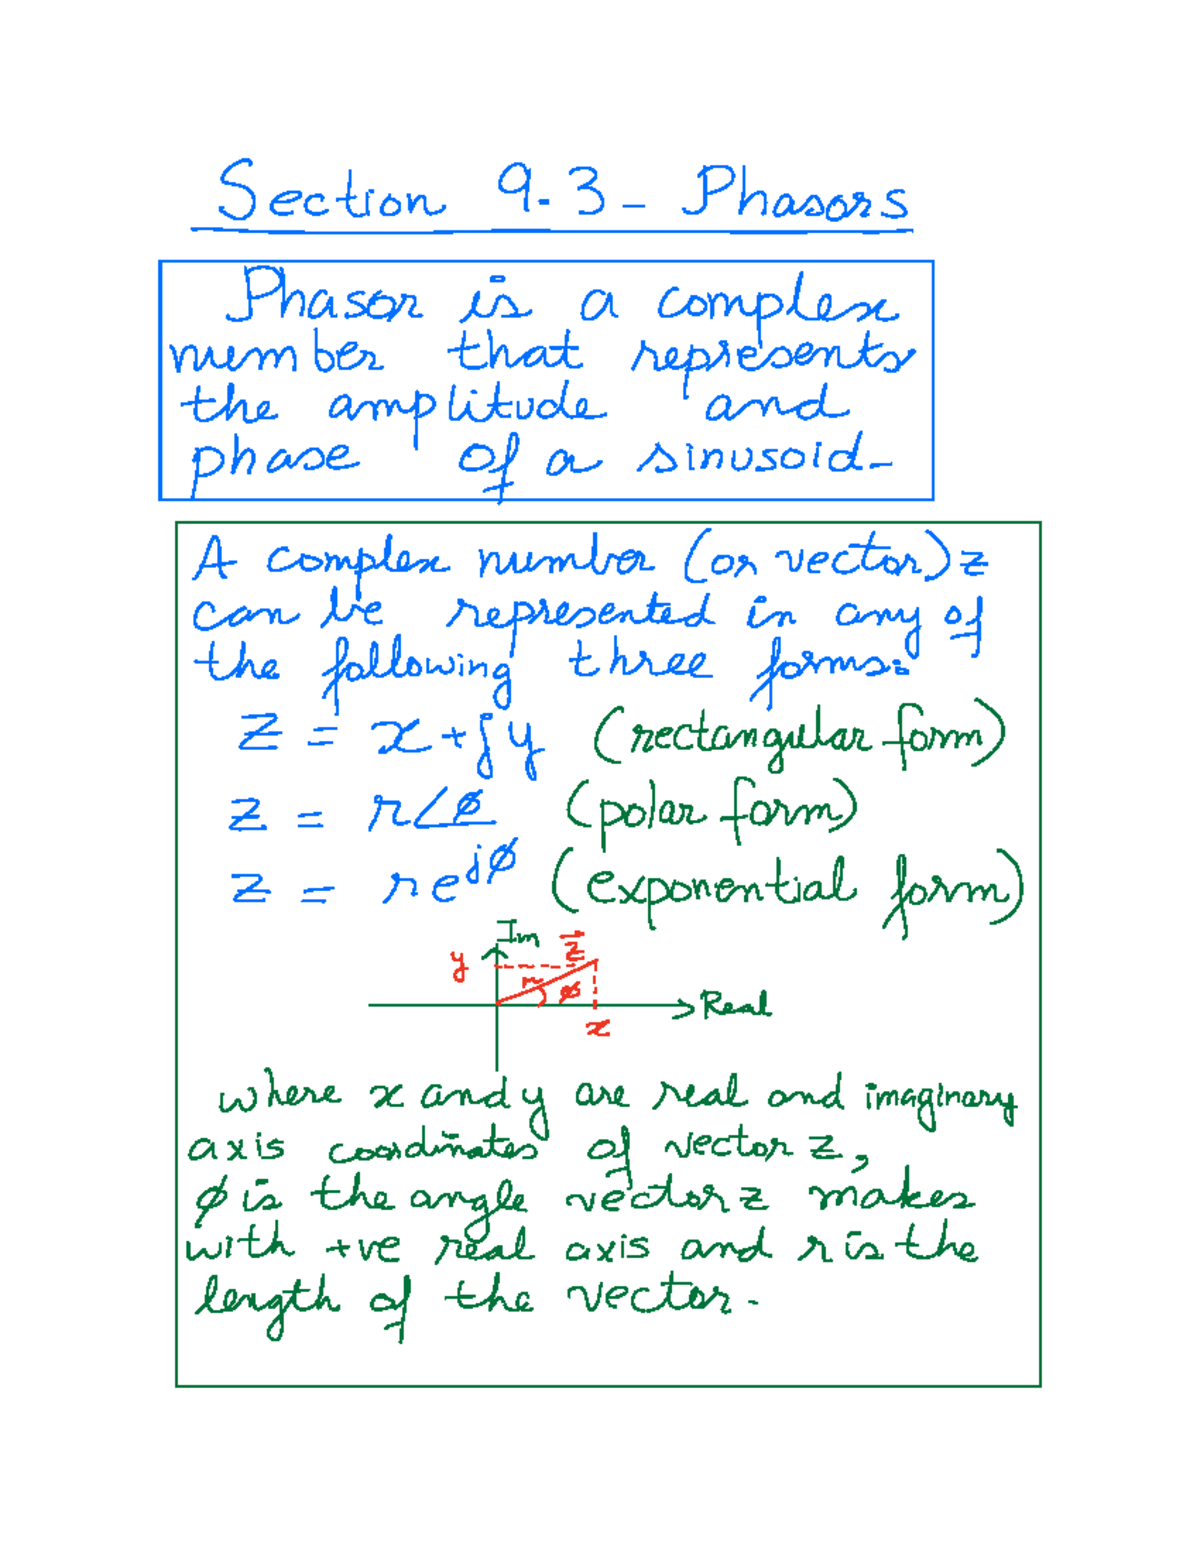 Section 9.3 - Phasors
Phasor is a complex
number that represents
the amplitude and
phase of a sinusoid.
A complex number (or vector) z
can be represented in any of
the following three forms:
z = x + jy (rectangular form)
z = r∠ø (polar form)
z = re^jø (exponential form)
Im
y
z⃗
r
ø
Real
x
where x and y are real and imaginary
axis coordinates of vector z,
ø is the angle vector z makes
with +ve real axis and r is the
length of the vector.